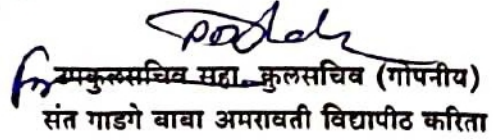 उपकुलसचिव सहा. कुलसचिव (गोपनीय)
संत गाडगे बाबा अमरावती विद्यापीठ करिता